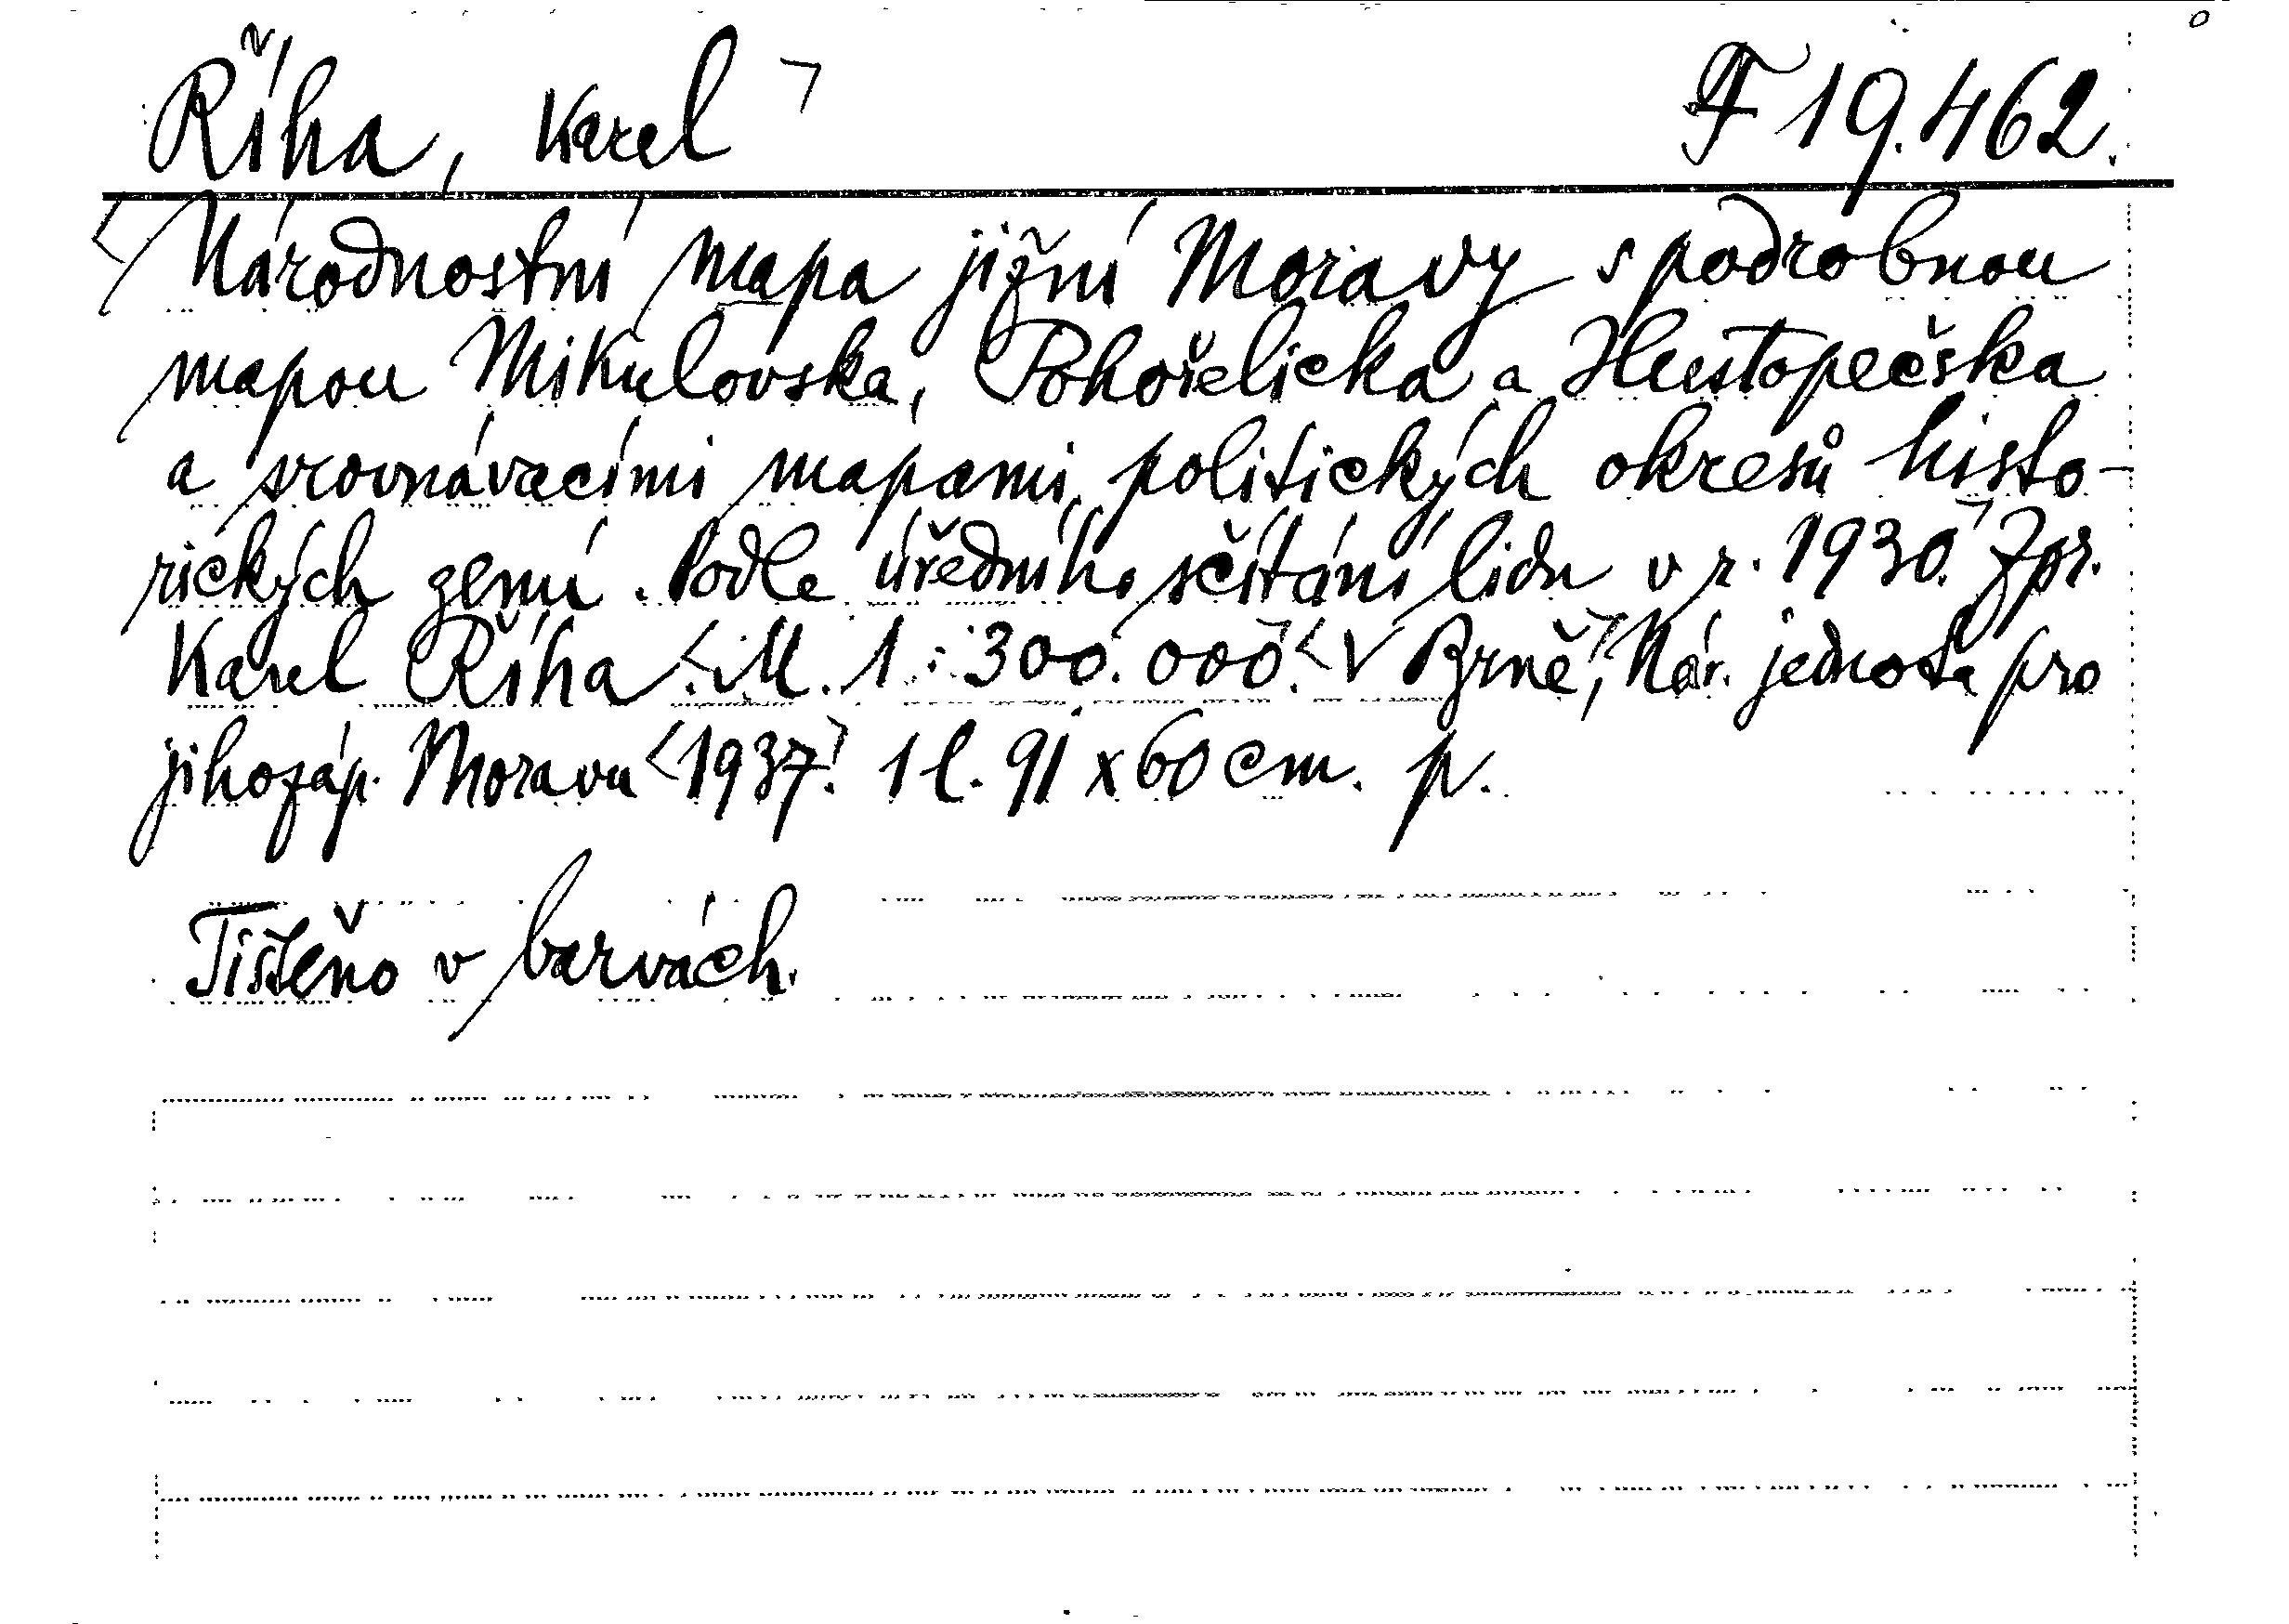 Říha, Karel ㄱ F 19.462.
<Národnostní mapa jižní Moravy s podrobnou
mapou Mikulovska, Pohořelicka a Hustopečska
a srovnávacími mapami politických okresů histo-
rických zemí. Podle úředního sčítání lidu v r. 1930.> Zpr.
Karel Říha.<M. 1:300.000.><V Brně,> Nár. jednota pro
jihozáp. Moravu <1937.> 1 l. 91 x 60 cm. p.
Tištěno v barvách.